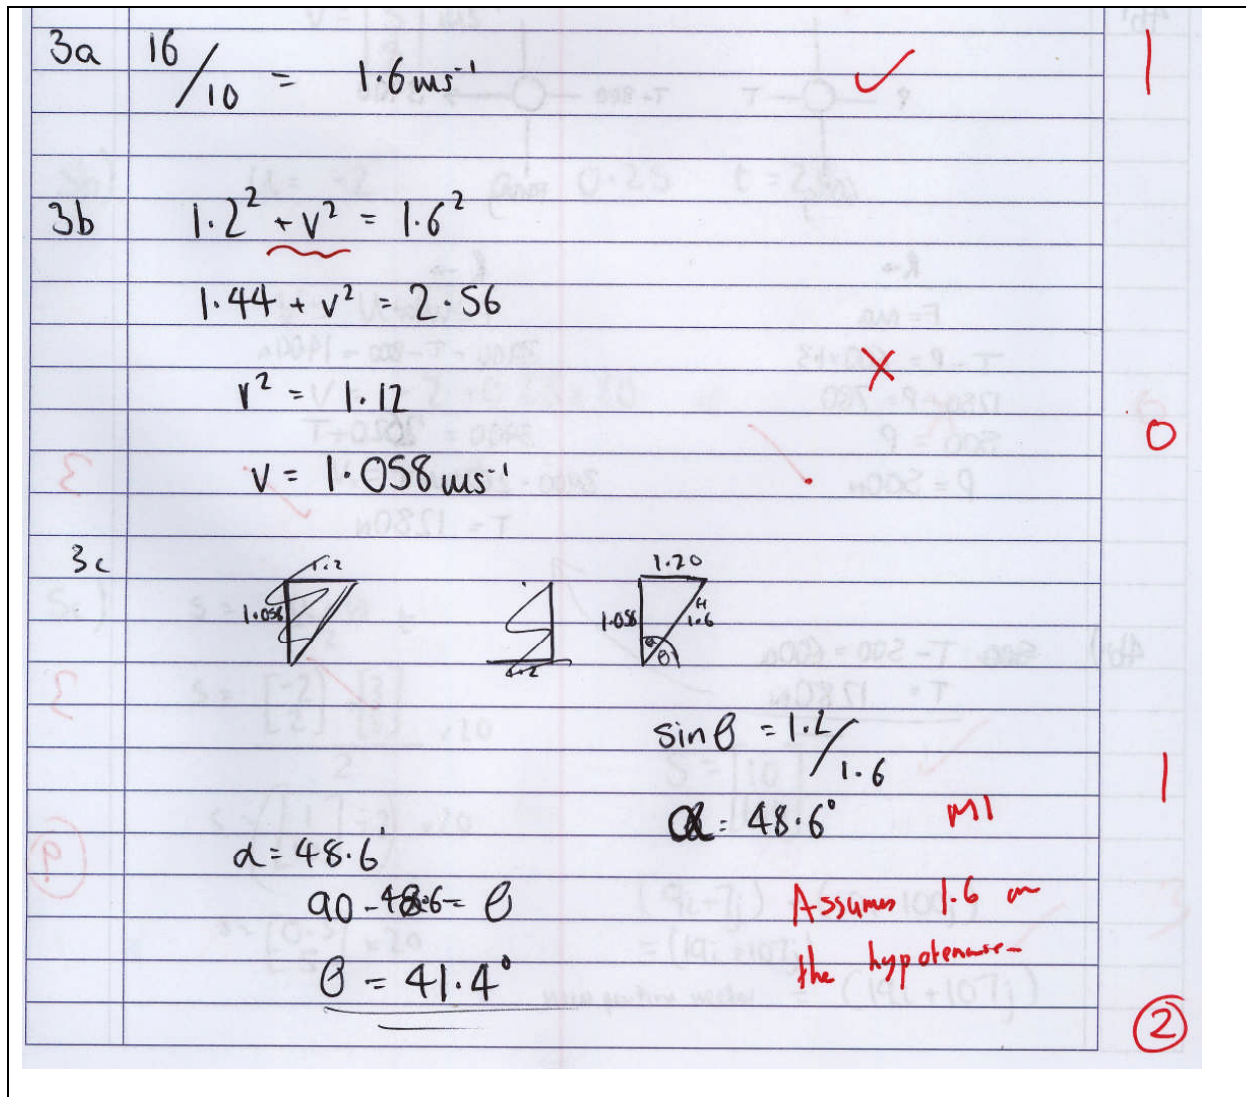 3a 16/10 = 1.6 ms⁻¹ ✓ 1
3b 1.2² + v² = 1.6²
1.44 + v² = 2.56
v² = 1.12 X
0
v = 1.058 ms⁻¹
3c
1.2
1.058
1.2
1.20
1.058
H
1.6
α
θ
sin θ = 1.2/1.6
1
α = 48.6° M1
α = 48.6°
90 - 48.6 = θ
Assumes 1.6 on
the hypotenuse
θ = 41.4°
2